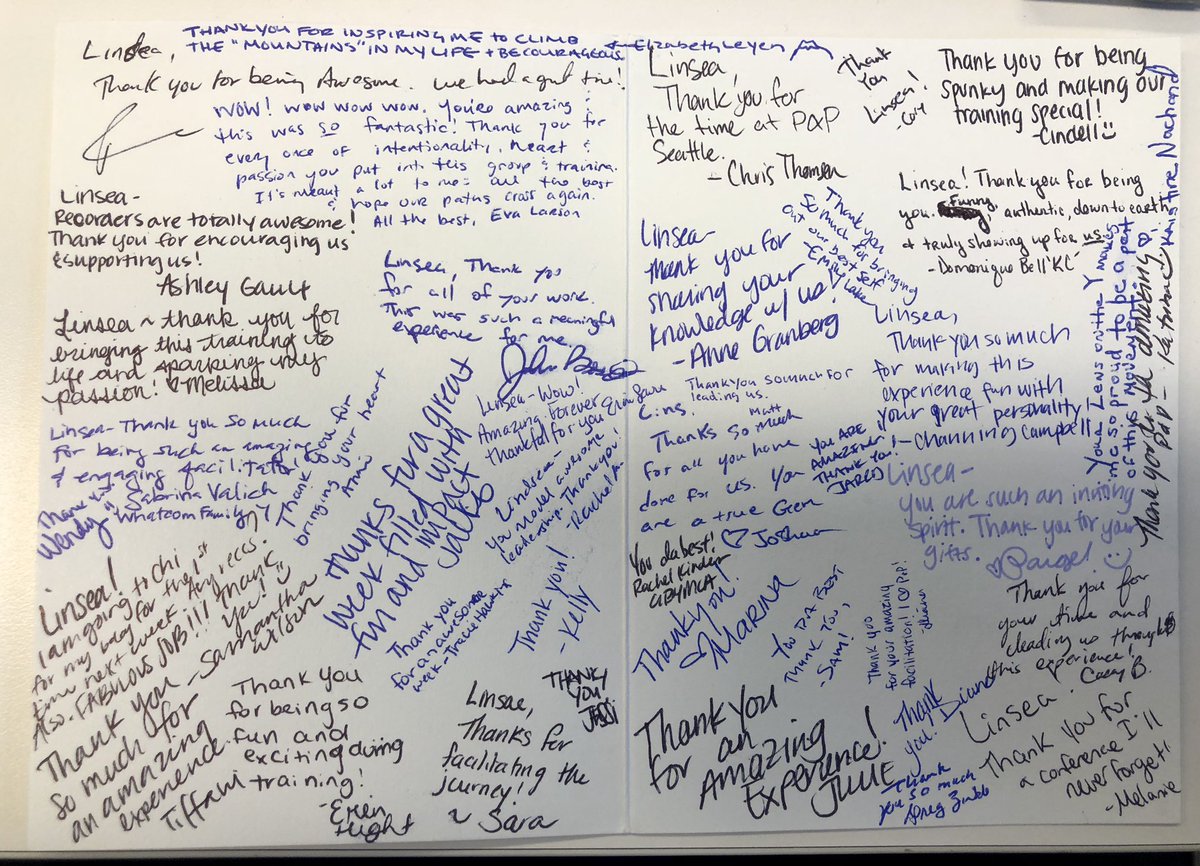 Linsea,
Thank you for being Awesome. We had a great time!
THANK YOU FOR INSPIRING ME TO CLIMB
THE "MOUNTAINS" IN MY LIFE + BE COURAGEOUS
Elizabeth Leyen
WOW! wow wow wow. You're amazing &
this was so fantastic! Thank you for
every once of intentionality, heart &
passion you put into this group & training.
It's meant a lot to me - all the best
& hope our paths cross again.
All the best, Eva Larson
Linsea-
Recorders are totally awesome!
Thank you for encouraging us
& supporting us!
Ashley Gault
Linsea, Thank you
for all of your work.
This was such a meaningful
experience for me.
Linsea ~ thank you for
bringing this training to
life and sparking my
passion! Melissa
Linsea- Thank you so much
for being such an amazing
& engaging facilitator!
Sabrina Valich
Whatcom Family Y
Thank you
Wendy
Thank you for
bringing your heart
thanks for a great
week filled with
fun and impact
Jacob
Linsea-Wow!
Amazing, forever
thankful for you
Lindsea-
you model awesome
leadership. Thank you!
-Rachel
Thank you!
-Kelly
Thank you
for an awesome
week
Linsea!
I am going to Chi
for my bday for the 1st
time next week. Any reccs.
Also. FABULOUS JOB!!! Thank
you!
-Samantha
Wilson
Thank you
so much for
an amazing
experience
Tiffani
Thank you
for being so
fun and
exciting during
training!
-Eren
Hight
Linsae,
Thanks for
facilitating the
journey!
~ Sara
THANK
YOU!
JESSI
Linsea,
Thank you for
the time at PAP
Seattle.
-Chris Thomsen
Thank
You
Linsea!
-Cory
Thank you for being
spunky and making our
training special!
-Cindell
Linsea! Thank you for being
you. Funny, authentic, down to earth
& truly showing up for us.
-Domenique Bell'KC'
Linsea-
Thank you for
sharing your
knowledge w/ us!
-Anne Granberg
Thank you
so much for bringing
out our best self
Emily Lake
Linsea,
Thank you so much
for making this
experience fun with
your great personality!
-Channing Campbell
Your lens on the Y makes
me so proud to be a part
of this movement!
Kristine Nachand
Thank you for your amazing
PAP- Katrina
Thank you so much for
leading us.
Matt
Lins.
Thanks so much
for all you have
done for us. You
are a true Gem
Joshua
YOU ARE
AMAZING!
THANK YOU!
JARED
Linsea-
you are such an inviting
spirit. Thank you for your
gifts.
Paige!
You da best!
Rachel Kinder
GBYMCA
Thank you!
MARINA
You DA BOSS
Thank You,
-Sam!
Thank you
for your amazing
facilitation! I ♡ PAP!
Thank you for
your time and
leading us through
this experience!
-Casey B.
Thank you
for an
Amazing
Experience!
JULIE
Thank
you.
Diand
Thank
you so much
Linsea
Thank you for
a conference I'll
never forget!
-Melanie